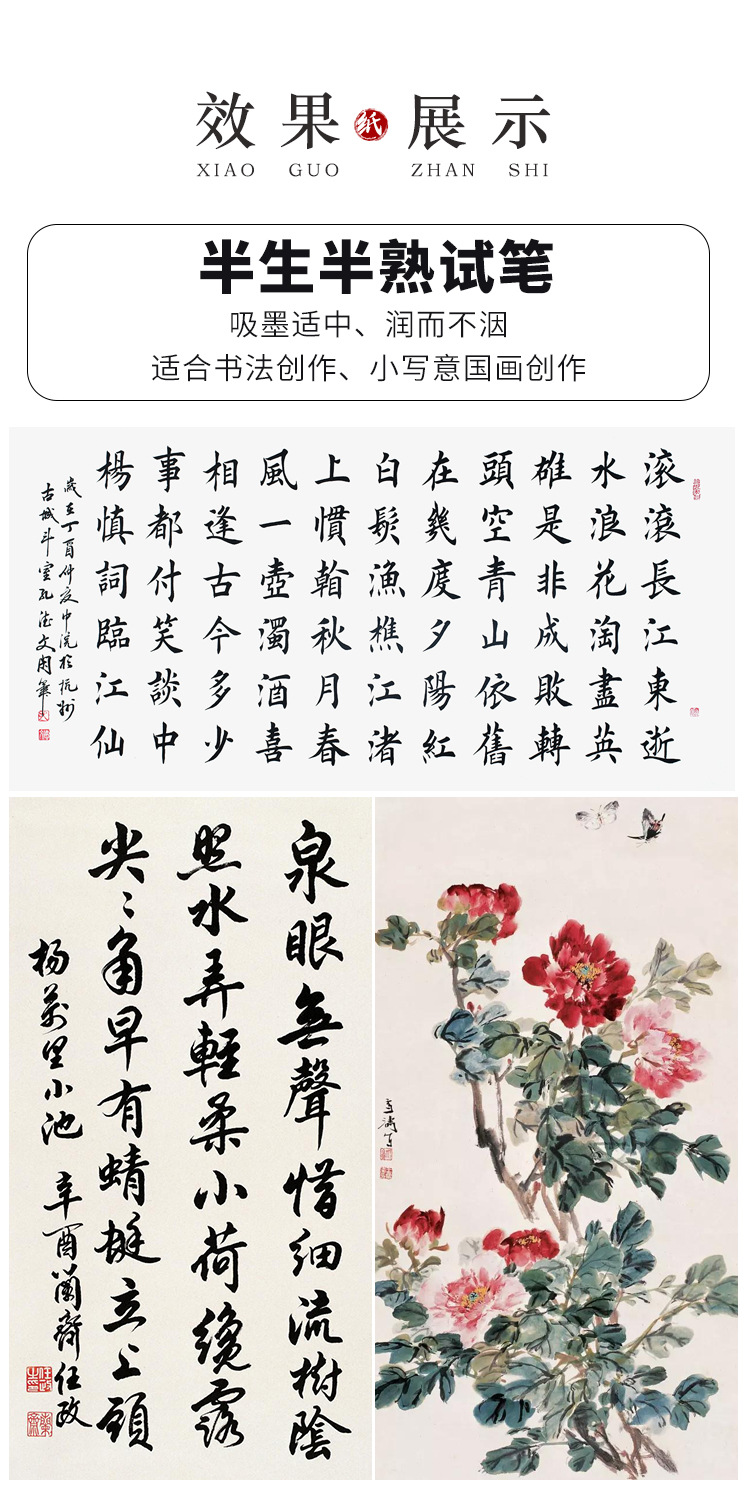 效果纸展示
XIAO GUO ZHAN SHI
半生半熟试笔
吸墨适中、润而不洇
适合书法创作、小写意国画创作
滚滾長江東逝
水浪花淘盡英
雄是非成敗轉
頭空青山依舊
在幾度夕陽紅
白髮漁樵江渚
上慣翰秋月春
風一壺濁酒喜
相逢古今多少
事都付笑談中
楊慎詞臨江仙
歲在丁酉仲夏中浣於杭州
泉眼無聲惜細流樹陰
照水弄輕柔小荷纔露
尖〻角早有蜻蜓立上頭
杨萬里小池
辛酉蘭齋任政